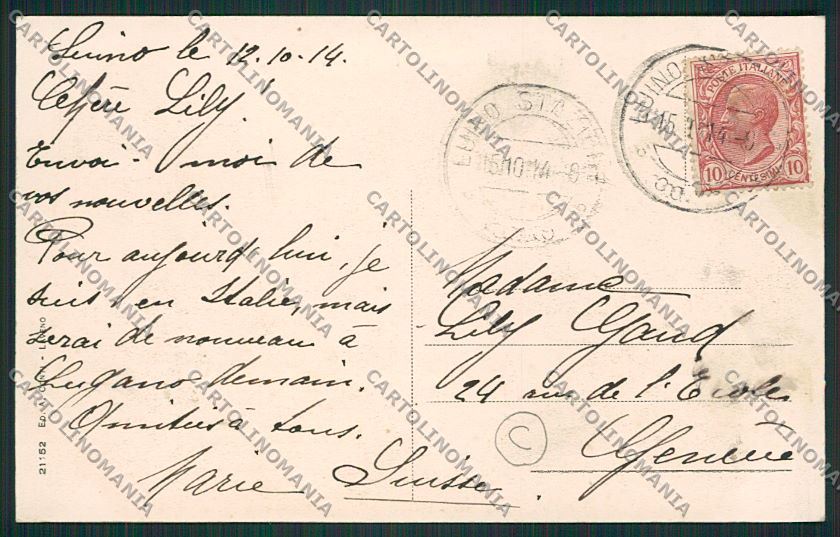 Luino le 12-10-14.
Chère Lily!
Envoi-moi de
vos nouvelles.
Pour aujourd'hui, je
suis en Italie, mais
serai de nouveau à
Lugano demain.
Amitiés à tous.
Marie
Madame
Lily
24 rue de l'Ecole
Genève
Suisse.
C
POSTE ITALIANE
10 CENTESIMI 10
LUINO
15.10.14-8
LUINO
15.10.14-8
21152 Ed.
CARTOLINOMANIA